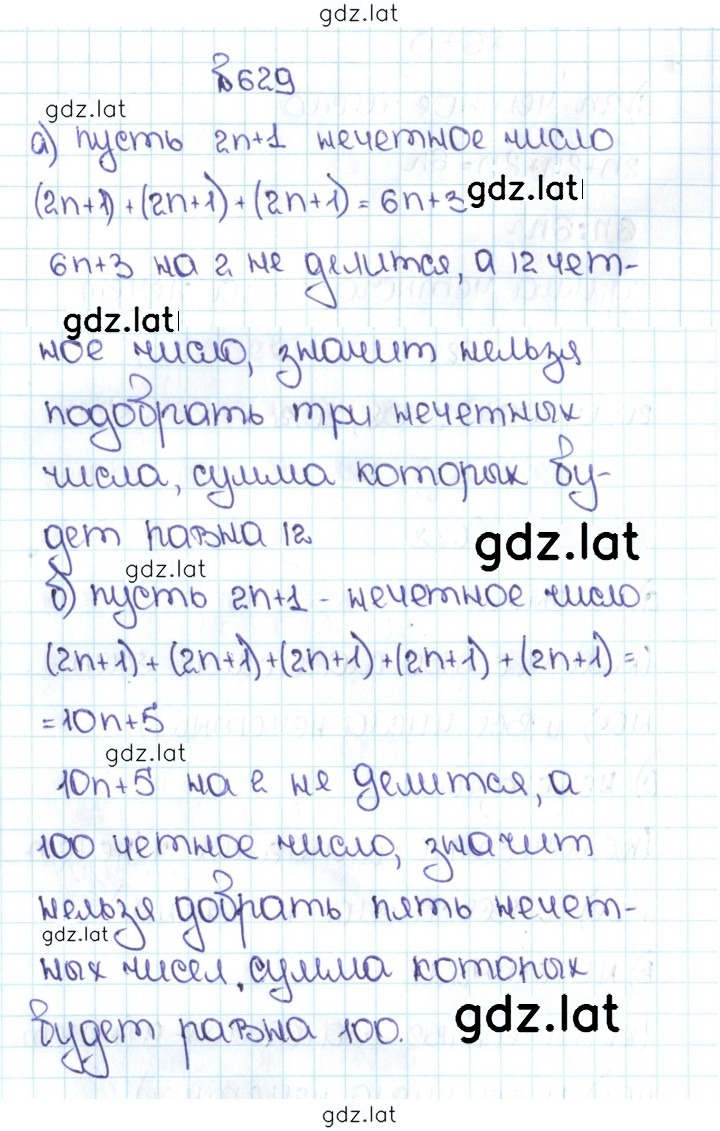 gdz.lat
№629
gdz.lat
а) пусть 2n+1 нечетное число
(2n+1) + (2n+1) + (2n+1) = 6n+3 gdz.lat
6n+3 на 2 не делится, а 12 чет-
gdz.lat
ное число, значит нельзя
подобрать три нечетных
числа, сумма которых бу-
дет равна 12
gdz.lat
gdz.lat
б) пусть 2n+1 - нечетное число
(2n+1) + (2n+1) + (2n+1) + (2n+1) + (2n+1) =
= 10n+5
gdz.lat
10n+5 на 2 не делится, а
100 четное число, значит
нельзя добрать пять нечет-
gdz.lat
ных чисел, сумма которых
будет равна 100.
gdz.lat
gdz.lat